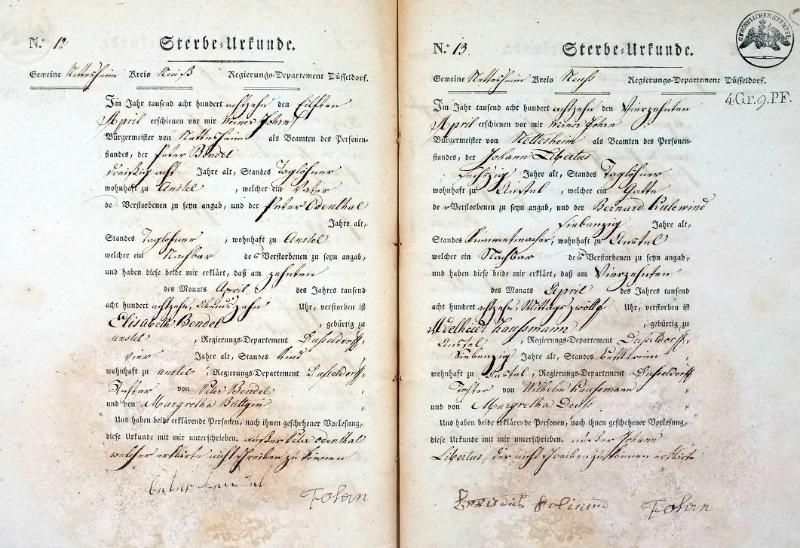 N. 12 Sterbe-Urkunde.
Gemeine Nettesheim Kreis Neuß Regierungs-Departement Düsseldorf.
Im Jahr tausend acht hundert achtzehn den Eilften
April erschienen vor mir
Bürgermeister von Nettesheim als Beamten des Personen-
standes, der Peter Bendel
dreißig acht Jahre alt, Standes Taglöhner
wohnhaft zu Anstel, welcher ein Vater
de Verstorbenen zu seyn angab, und der Peter Odenthal
Jahre alt,
Standes Taglöhner, wohnhaft zu Anstel
welcher ein Nachbar des Verstorbenen zu seyn angab,
und haben diese beide mir erklärt, daß am zehnten
des Monats April des Jahres tausend
acht hundert achtzehn, Uhr, verstorben ist
Elisabeth Bendel, gebürtig zu
anstel, Regierungs-Departement Dusseldorff
vier Jahre alt, Standes Kind
wohnhaft zu anstel, Regierungs-Departement Dusseldorff
Tochter von Peter Bendel
und von Margretha
Und haben beide erklärende Personen, nach ihnen geschehener Vorlesung,
diese Urkunde mit mir unterschrieben. außer Peter Odenthal
welcher erklärte nicht schreiben zu können
N. 13. Sterbe-Urkunde.
GEWÖHNLICHER STEMPEL
Gemeine Nettesheim Kreis Neuß Regierungs-Departement Düsseldorf.
4.Gr.9.PF.
Im Jahr tausend acht hundert achtzehn den Vierzehnten
April erschienen vor mir
Bürgermeister von Nettesheim als Beamten des Personen-
standes, der Johann Libertus
Jahre alt, Standes Taglöhner
wohnhaft zu Anstel, welcher ein Gatte
de Verstorbenen zu seyn angab, und der Bernard
Siebenzig Jahre alt,
Standes, wohnhaft zu Anstel
welcher ein Nachbar des Verstorbenen zu seyn angab,
und haben diese beide mir erklärt, daß am Vierzehnten
des Monats April des Jahres tausend
acht hundert achtzehn, Mittags zwölf Uhr, verstorben ist
Adelheid, gebürtig zu
Anstel, Regierungs-Departement Dusseldorff
Siebenzig Jahre alt, Standes
wohnhaft zu Anstel, Regierungs-Departement Dusseldorff
Tochter von Wilhelm
und von Margretha
Und haben beide erklärende Personen, nach ihnen geschehener Vorlesung,
diese Urkunde mit mir unterschrieben. Johann
Libertus, der nicht schreiben zu können erklärte